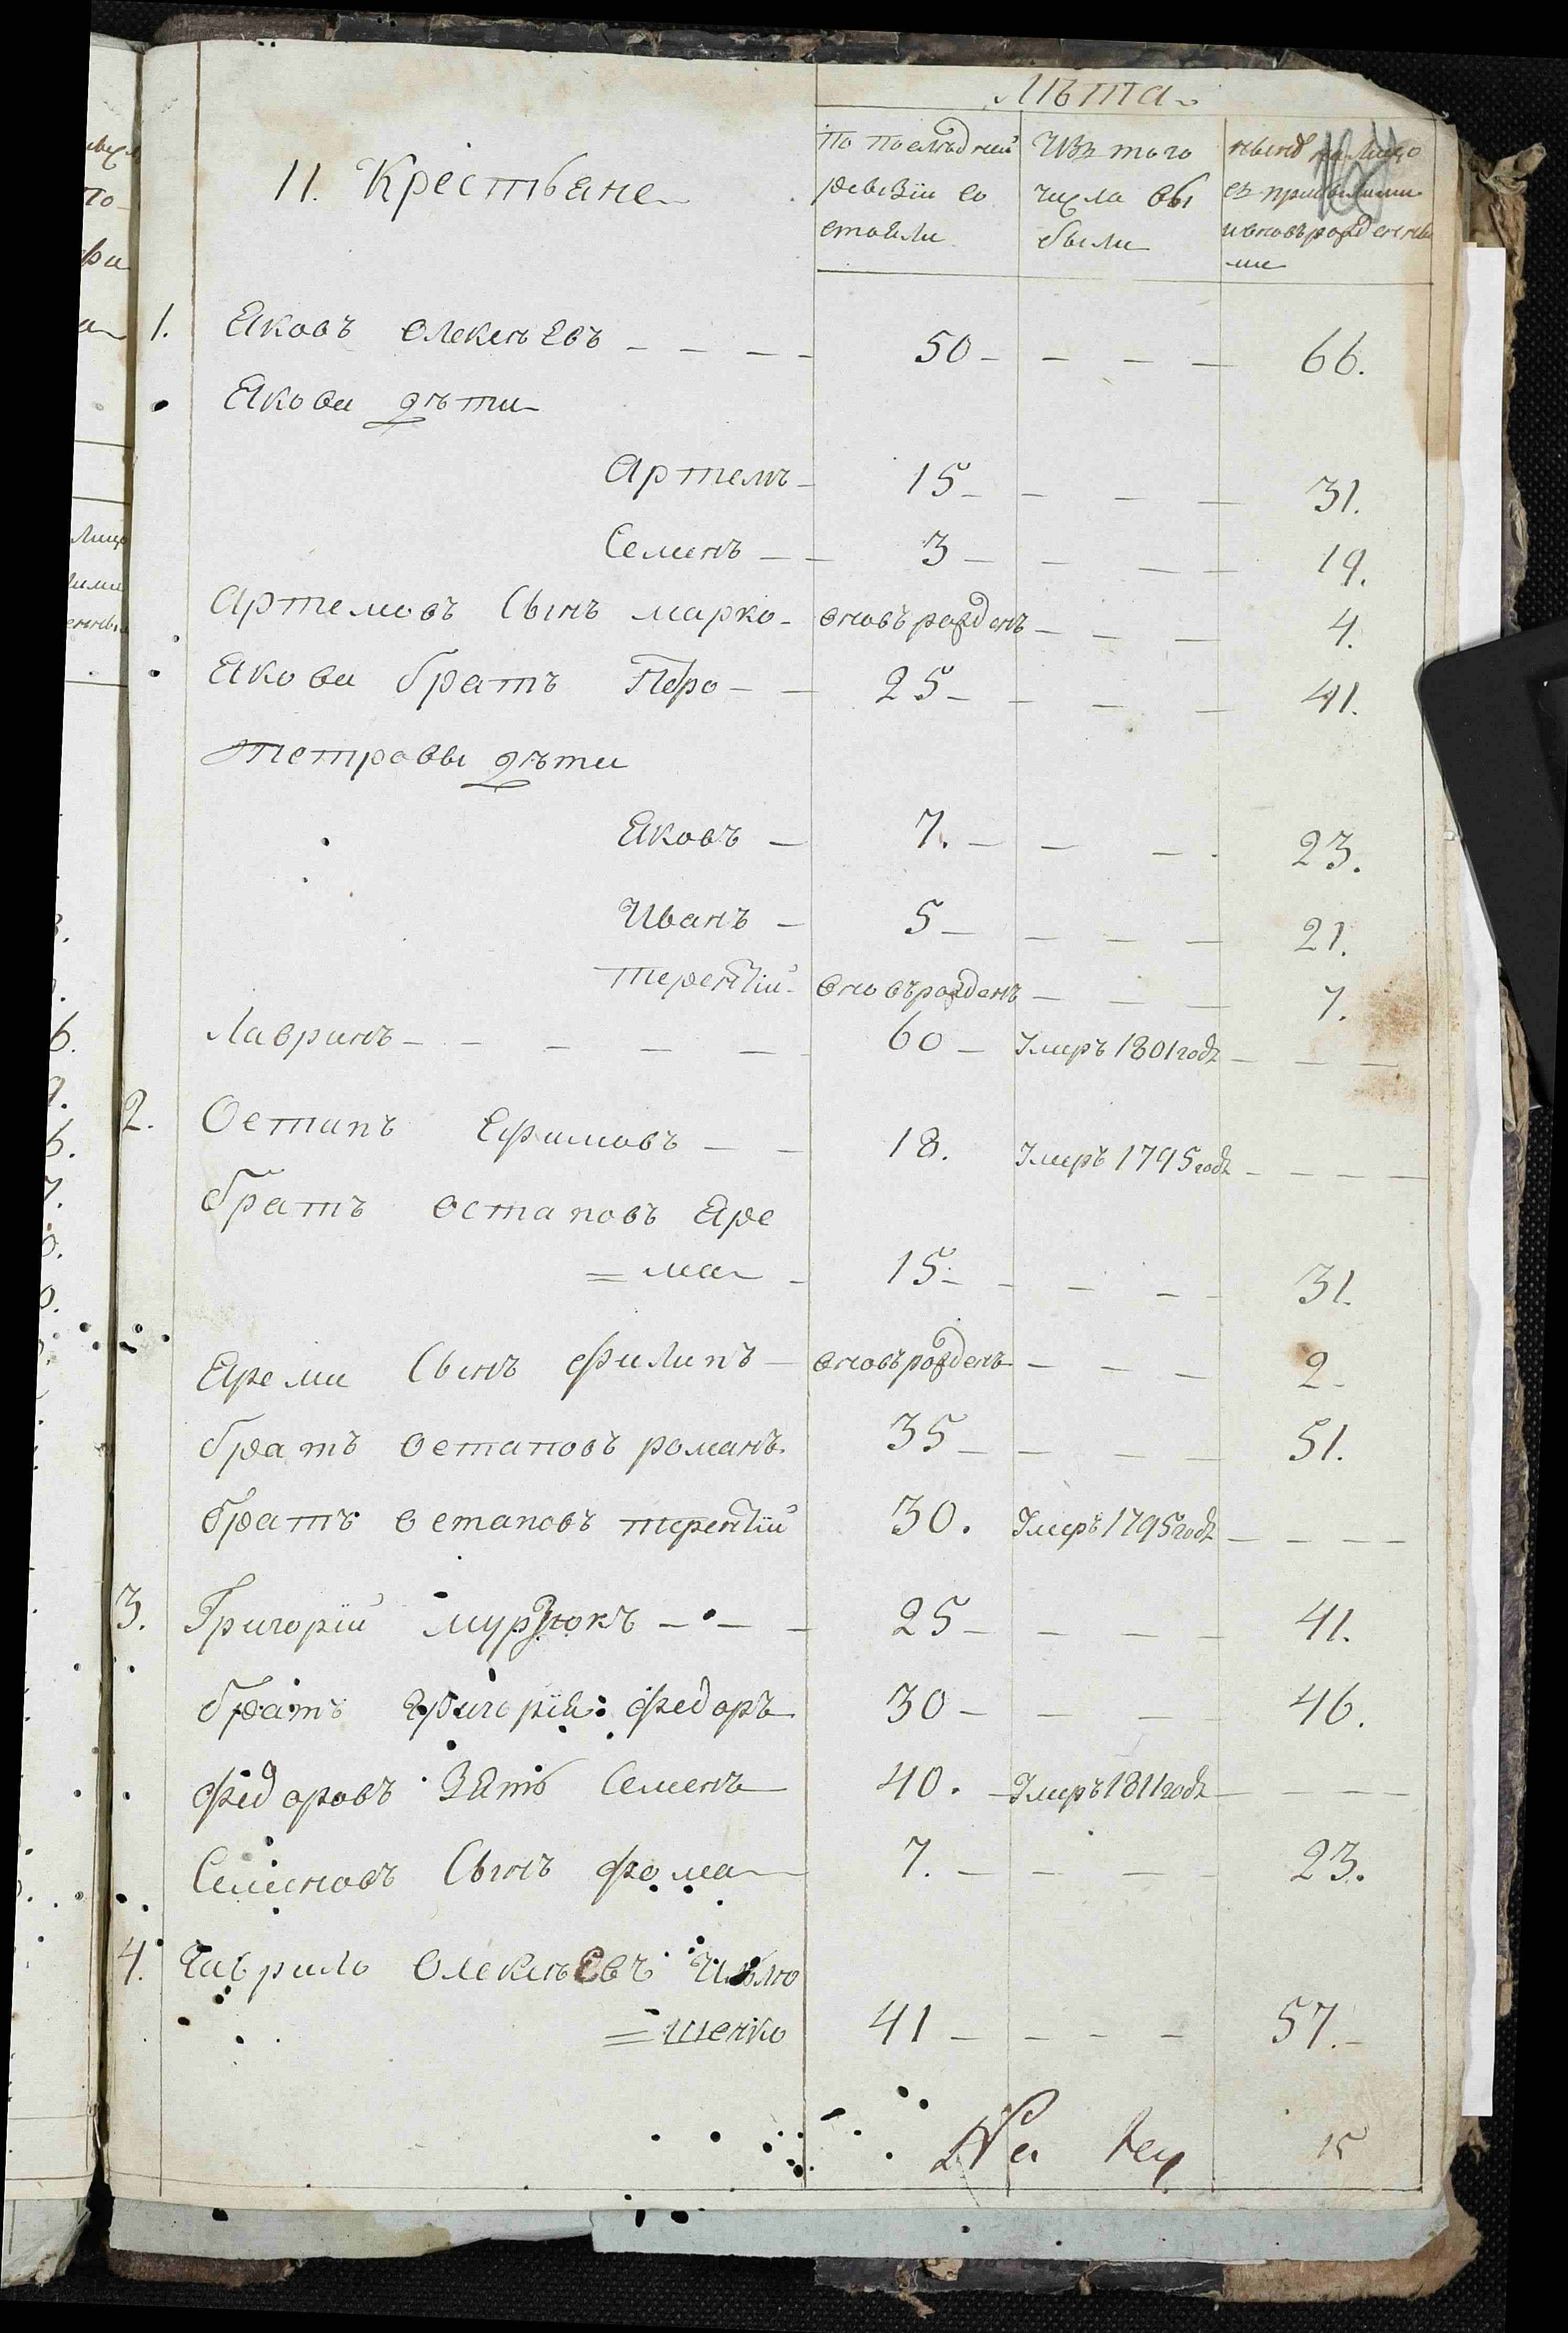 Лѣта
11. Крестьяне
По последней ревизіи состояли
Изъ того числа выбыли
нынѣ на лицо съ прибылыми и вновърожденными
1. Яковъ Олексѣевъ 50 66.
Якова дѣти
Артемъ 15 31.
Семенъ 3 19.
Артемовъ Сынъ марко вновърожденъ 4.
Якова братъ Петро 25 41.
Петровы дѣти
Яковъ 7. 23.
Иванъ 5 21.
Терентій вновърожденъ 7.
Лавринъ 60 Умеръ 1801годъ
2. Остапъ Ефимовъ 18. Умеръ 1795годъ
братъ остаповъ Яре
=ма 15 31.
Яреми Сынъ филипъ вновърожденъ 2
братъ остаповъ романъ 35 51.
братъ остаповъ терентій 30. Умеръ 1795годъ
3. Григорій мурзюкъ 25 41.
братъ Григорія федоръ 30 46.
федоровъ Зять Семенъ 40. Умеръ 1811годъ
Семеновъ Сынъ фома 7. 23.
4. Гаврило Олексѣевъ
=шенко 41 57.
15